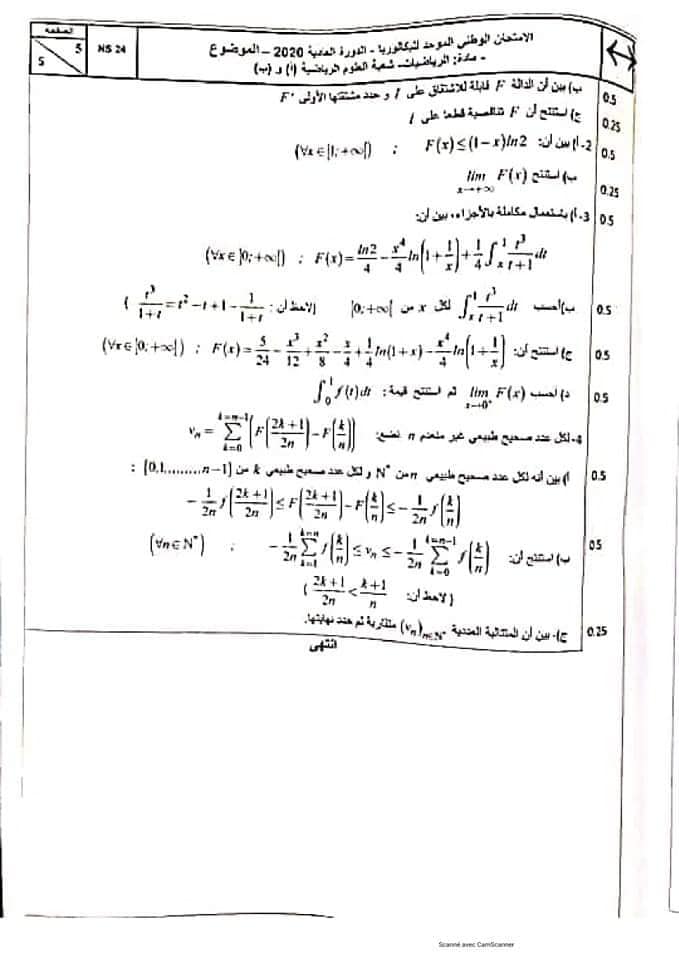 الصفحة
5
5
NS 24
الامتحان الوطني الموحد للبكالوريا - الدورة العادية 2020 – الموضوع
- مادة: الرياضيات- شعبة العلوم الرياضية (أ) و (ب)
0.5 ب) بين أن الدالة F قابلة للاشتقاق على I و حدد مشتقتها الأولى F'
0.25 ج) استنتج أن F تناقصية قطعا على I
0.5 2- أ) بين أن: F(x) ≤ (1-x)ln2 ; (∀x∈[1;+∞[)
0.25 ب) استنتج lim_{x→+∞} F(x)
0.5 3- أ) باستعمال مكاملة بالأجزاء، بين أن:
(∀x∈]0;+∞[) ; F(x) = ln2/4 - x⁴/4 ln(1+1/x) + 1/4 ∫_x^1 t³/(t+1) dt
0.5 ب) أحسب ∫_x^1 t³/(t+1) dt لكل x من ]0;+∞[ (لاحظ أن: t³/(1+t) = t² - t + 1 - 1/(1+t))
0.5 ج) استنتج أن: F(x) = 5/24 - x³/12 + x²/8 - x/4 + 1/4 ln(1+x) - x⁴/4 ln(1+1/x) ; (∀x∈]0;+∞[)
0.5 د) احسب lim_{x→0⁺} F(x) ثم استنتج قيمة: ∫_0^1 f(t)dt
4- لكل عدد صحيح طبيعي غير منعدم n نضع: v_n = Σ_{k=0}^{k=n-1} (F((2k+1)/2n) - F(k/n))
0.5 أ) بين أنه لكل عدد صحيح طبيعي n من ℕ* و لكل عدد صحيح طبيعي k من {0,1,.........n-1} :
- 1/2n f((2k+1)/2n) ≤ F((2k+1)/2n) - F(k/n) ≤ - 1/2n f(k/n)
0.5 ب) استنتج أن: - 1/2n Σ_{k=1}^{k=n} f(k/n) ≤ v_n ≤ - 1/2n Σ_{k=0}^{k=n-1} f(k/n) ; (∀n∈ℕ*)
(لاحظ أن: (2k+1)/2n < (k+1)/n)
0.25 ج)- بين أن المتتالية العددية (v_n)_{n∈ℕ*} متقاربة ثم حدد نهايتها.
انتهى
Scanné avec CamScanner